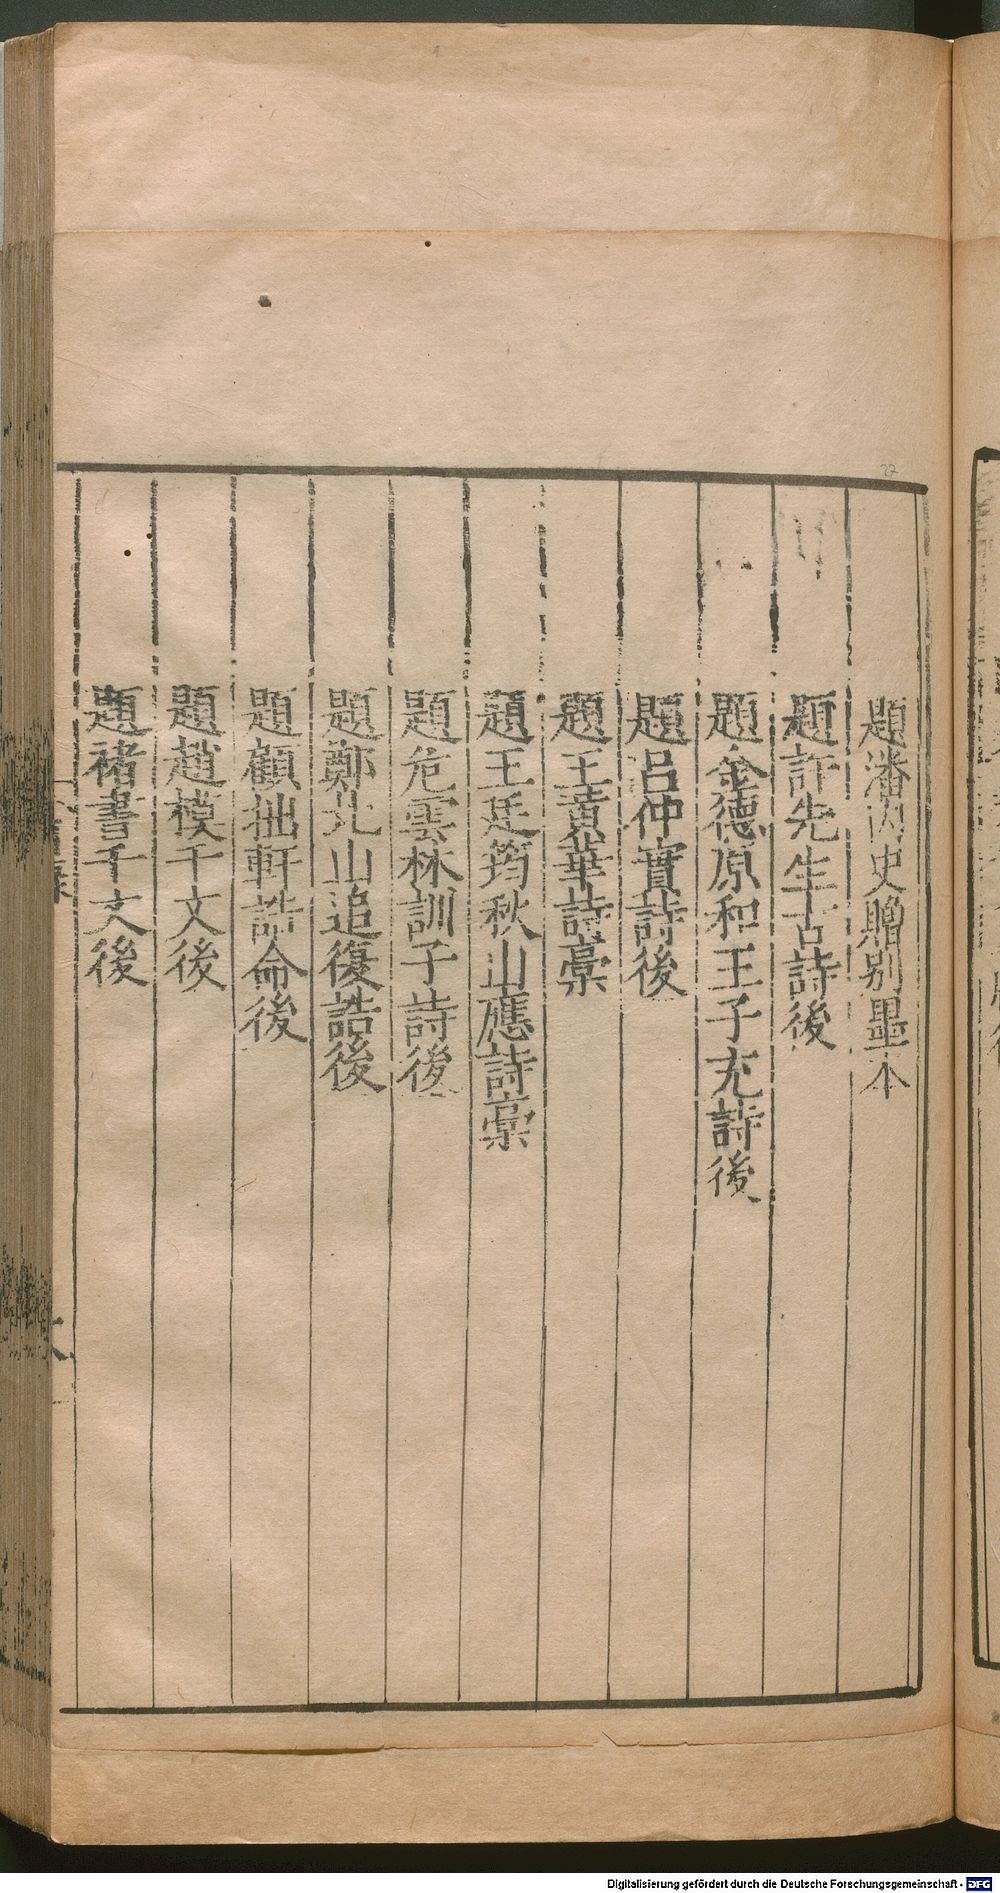 題潘内史贈别墨本
題許先生古詩後
題金德原和王子充詩後
題呂仲實詩後
題王黄華詩稾
題王廷筠秋山應詩稾
題危雲林訓子詩後
題鄭北山追復誥後
題顧拙軒誥命後
題趙模千文後
題褚書千文後
Digitalisierung gefördert durch die Deutsche Forschungsgemeinschaft - DFG